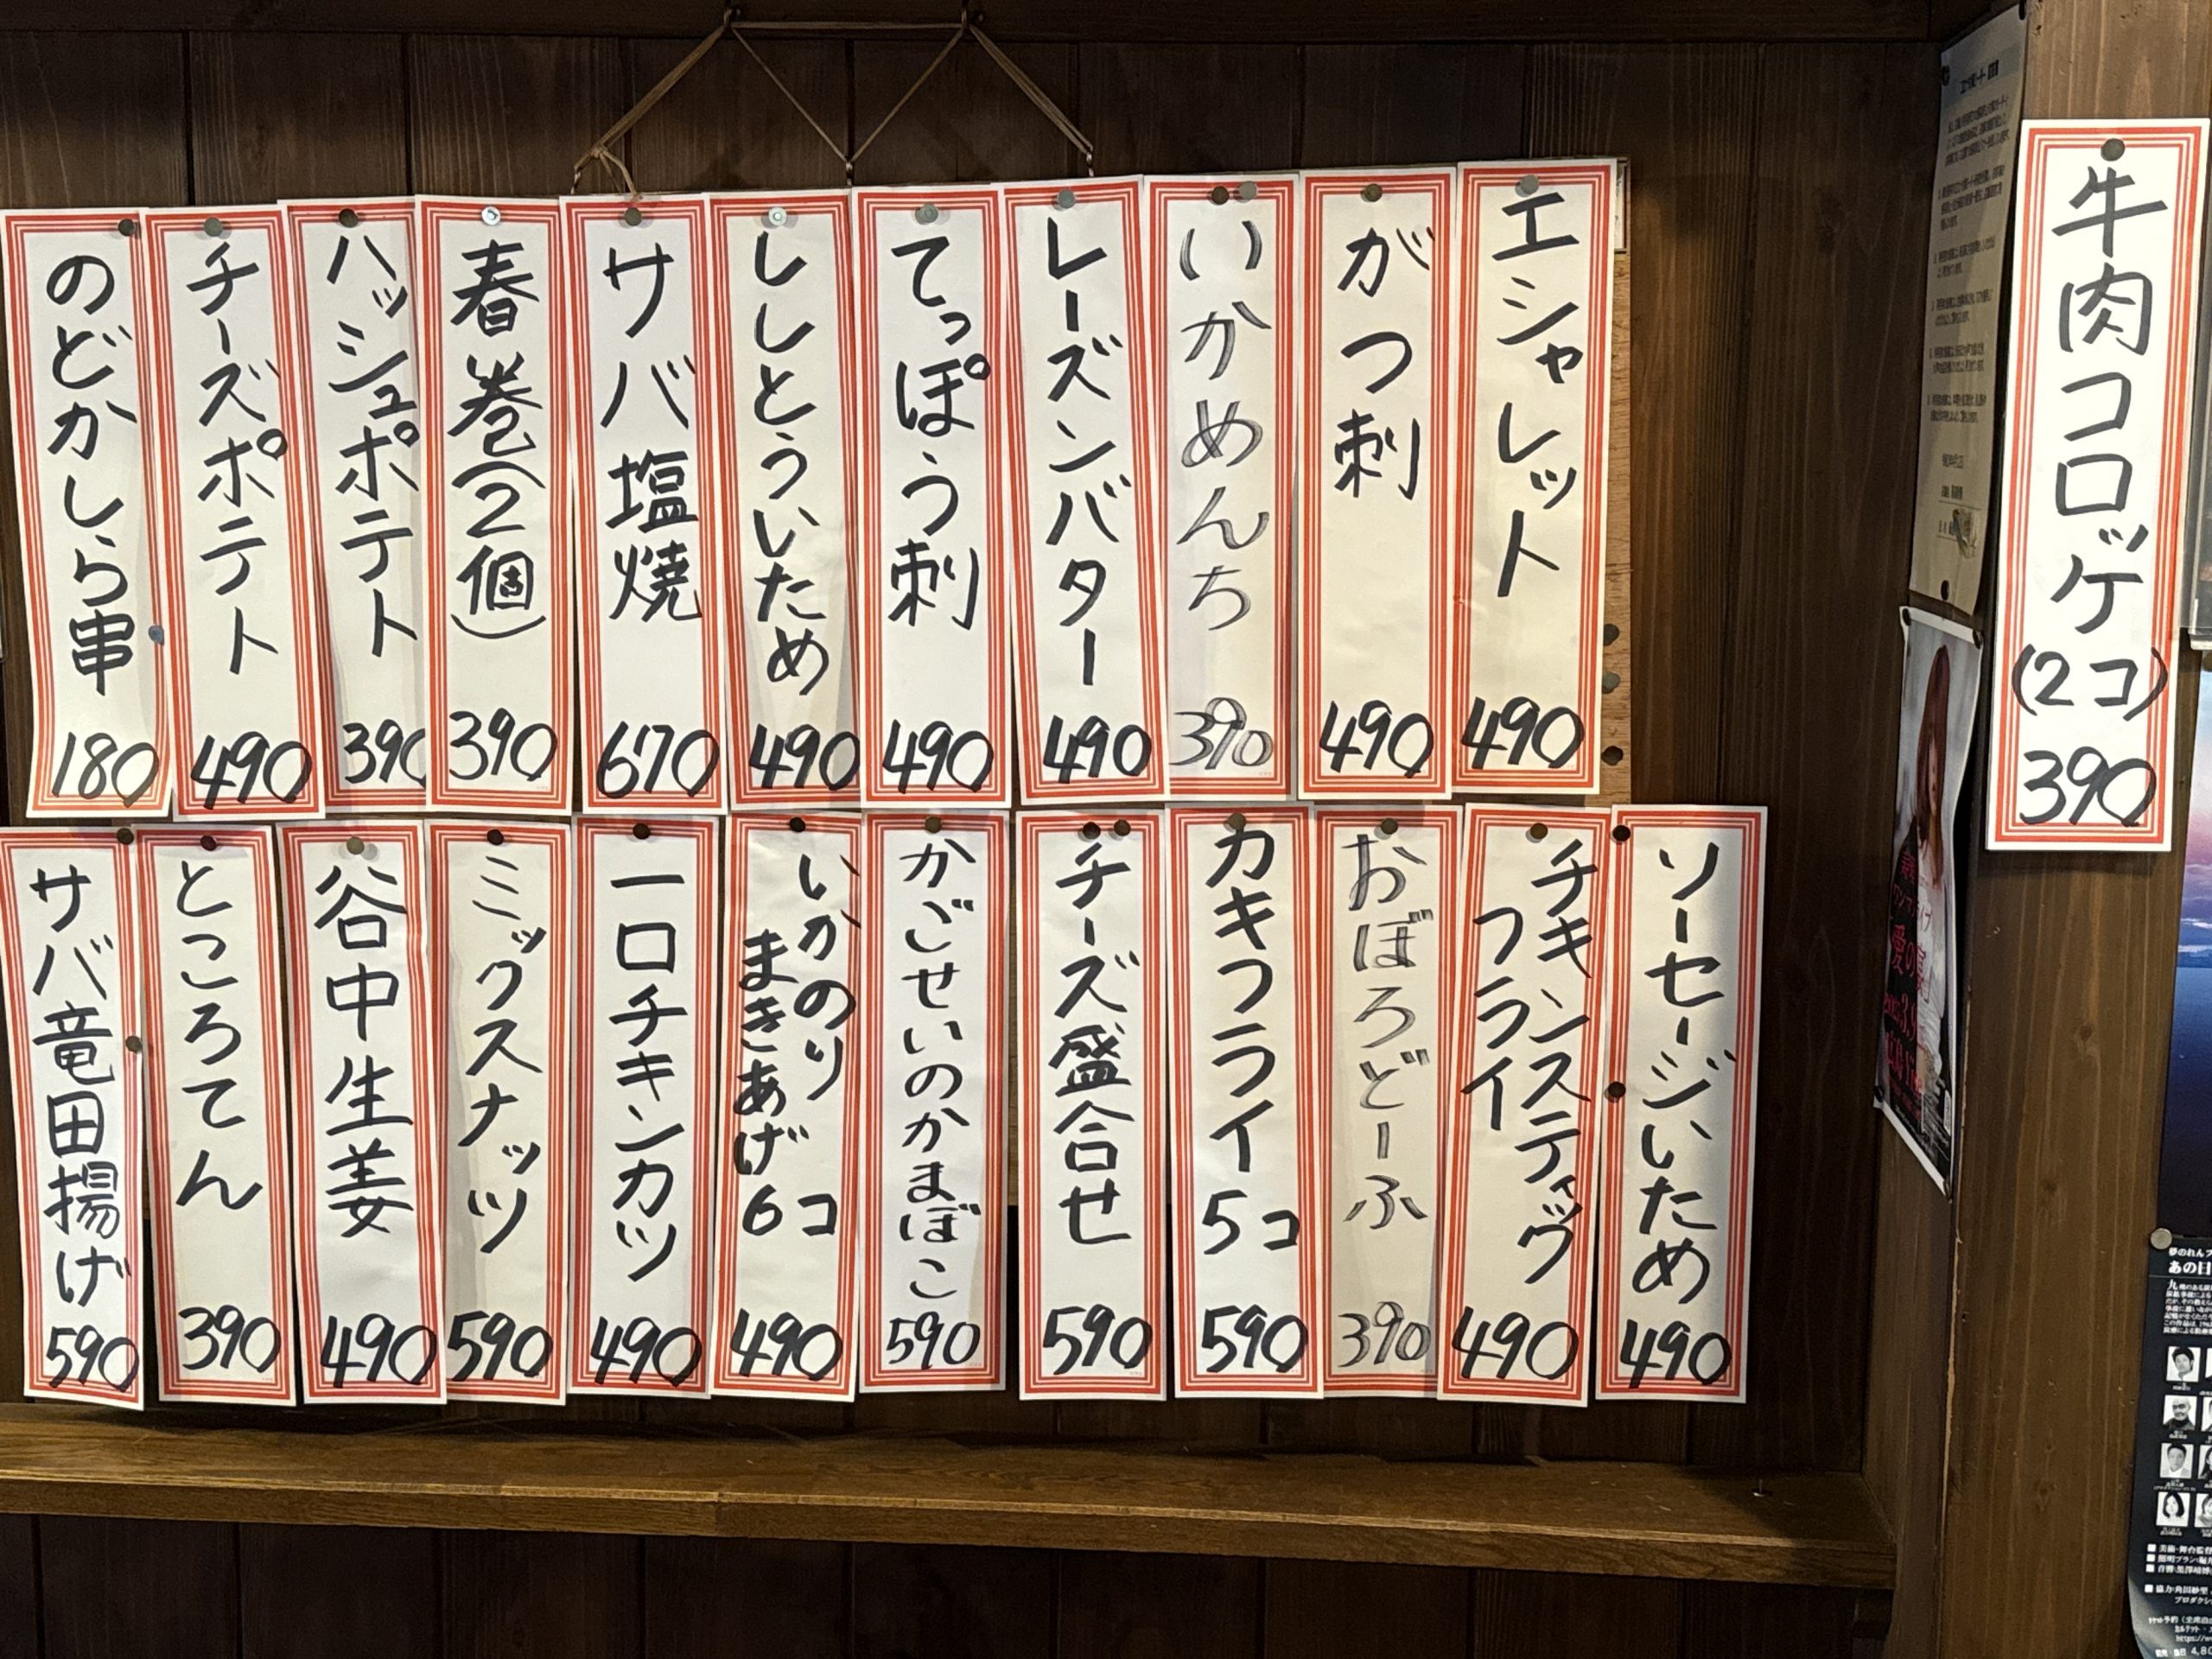 牛肉コロッケ(2コ) 390
エシャレット 490
がつ刺 490
いかめんち 390
レーズンバター 490
てっぽう刺 490
ししとういため 490
サバ塩焼 670
春巻(2個) 390
ハッシュポテト 390
チーズポテト 490
のどかしら串 180
ソーセージいため 490
チキンスティック
フライ 490
おぼろどーふ 390
カキフライ5コ 590
チーズ盛合せ 590
かごせいのかまぼこ 590
いかのり
まきあげ6コ 490
一口チキンカツ 490
ミックスナッツ 590
谷中生姜 490
ところてん 390
サバ竜田揚げ 590
愛の
夢のれん
あの日